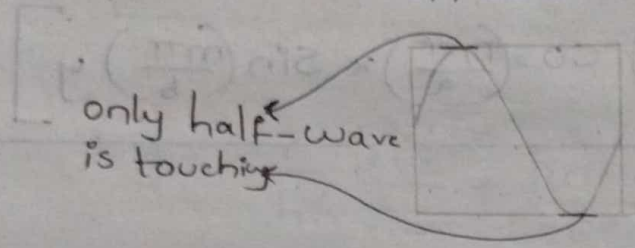 only half-wave
is touching